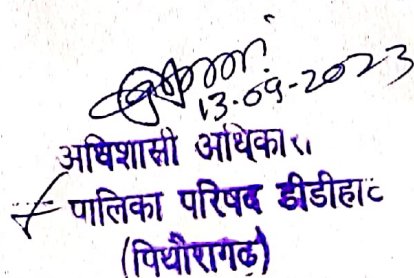 13-09-2023
अधिशासी अधिकारी
पालिका परिषद डीडीहाट
(पिथौरागढ़)